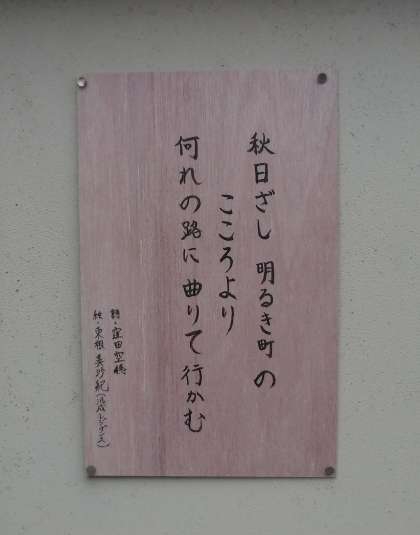 秋日ざし 明るき町の
こころより
何れの路に 曲りて行かむ
詩・窪田空穂